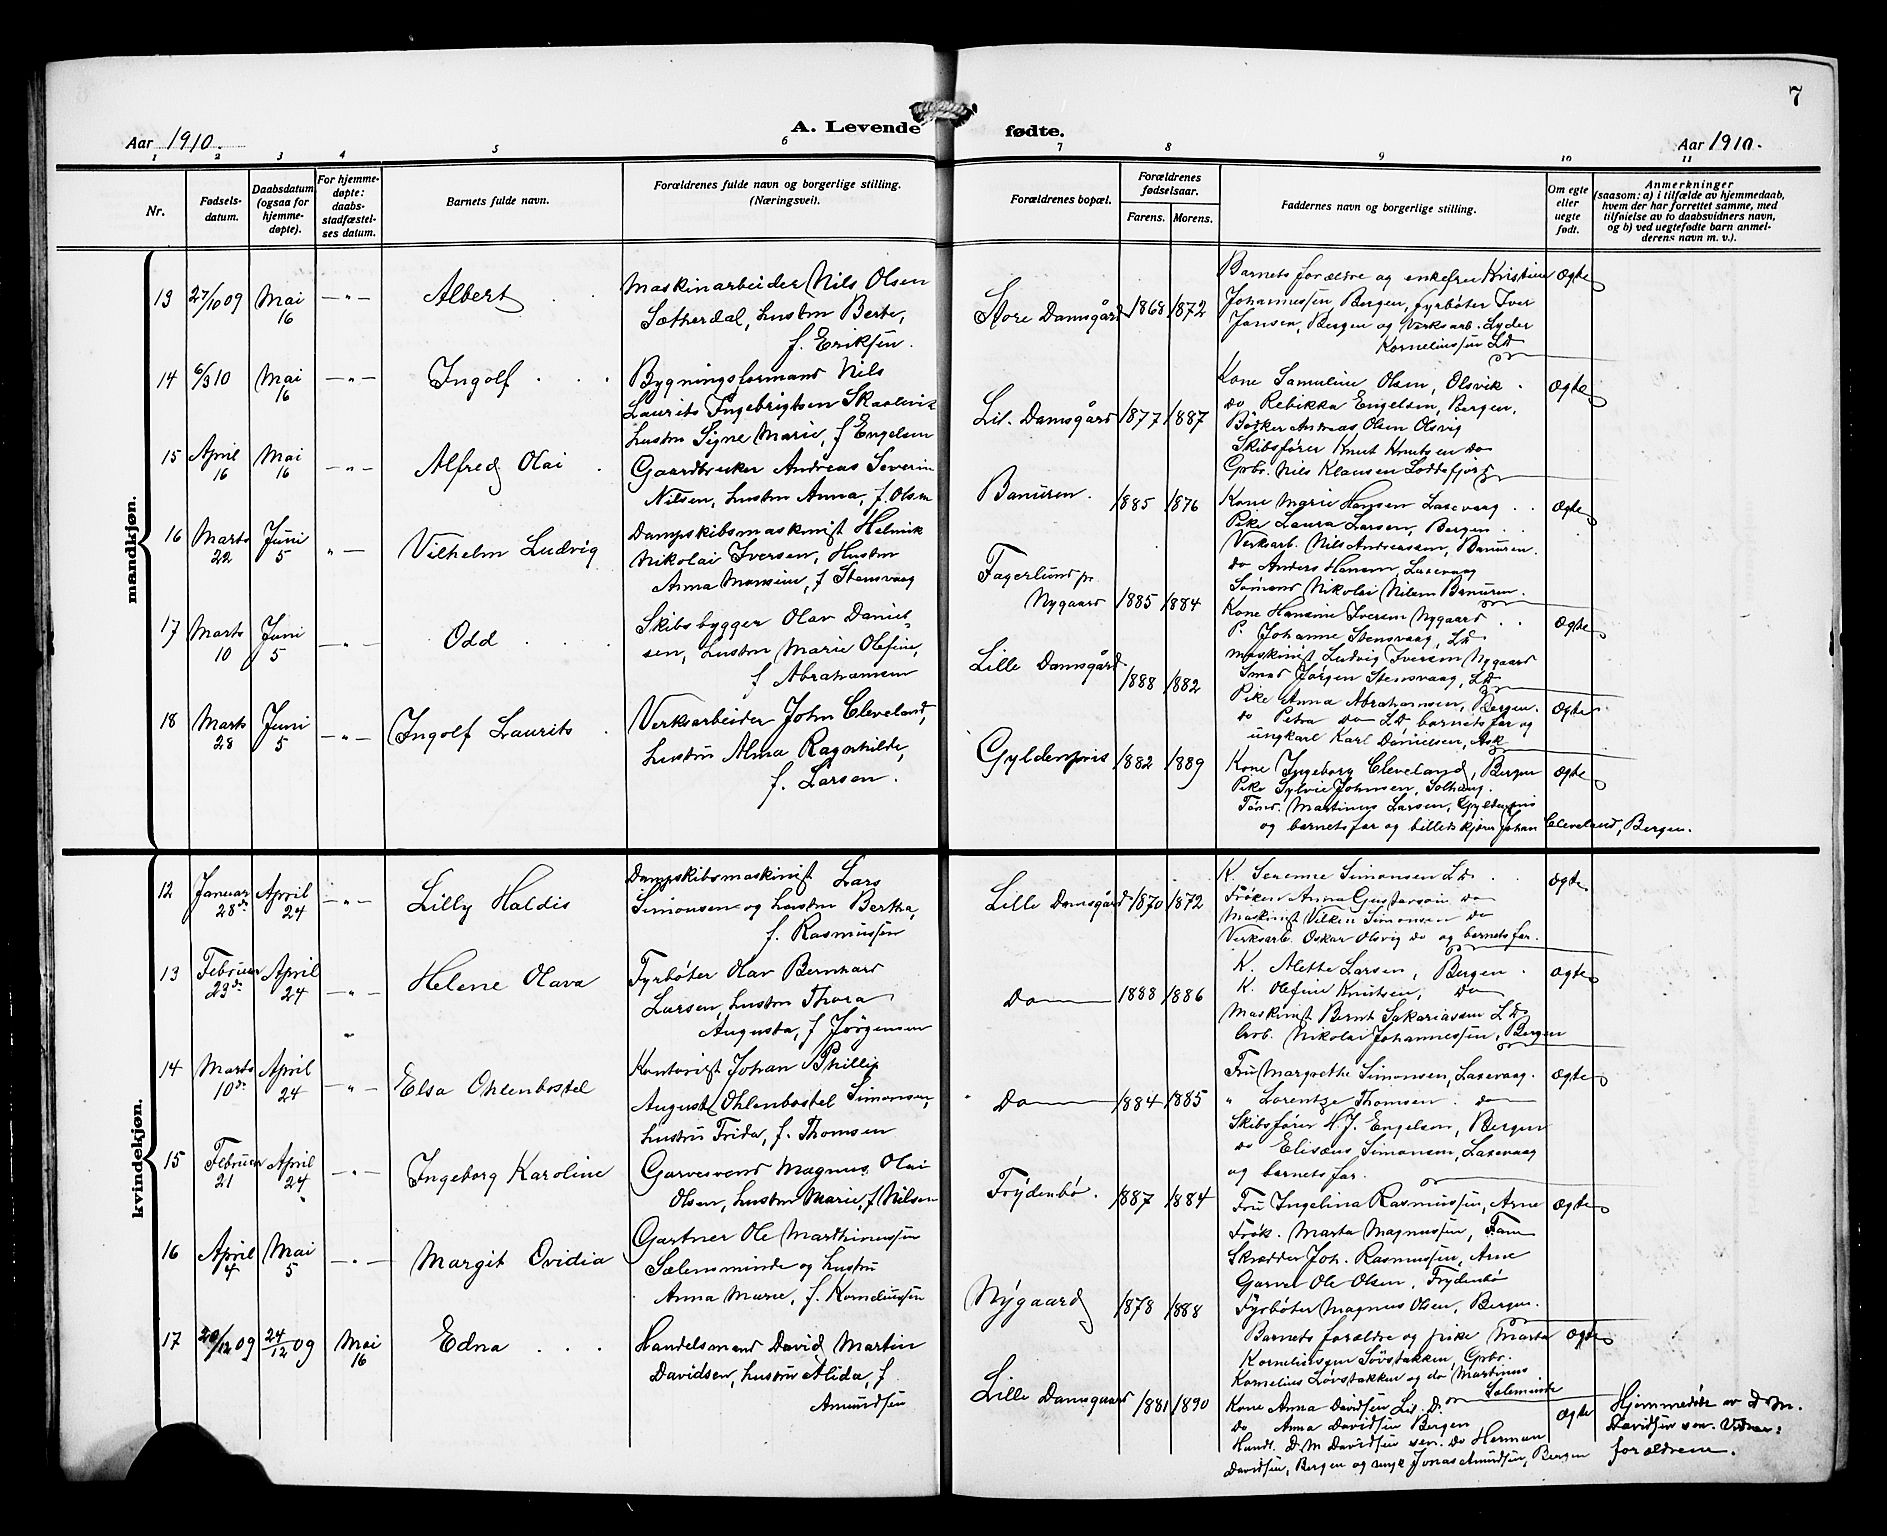 7
Aar 1910.
A. Levende fødte.
Aar 1910.
1 2 3 4 5 6 7 8 9 10 11
Nr.
Fødsels-
datum.
Daabsdatum
(ogsaa for
hjemme-
døpte).
For hjemme-
døpte:
daabs-
stadfæstel-
ses datum.
Barnets fulde navn.
Forældrenes fulde navn og borgerlige stilling.
(Næringsvei).
Forældrenes bopæl.
Forældrenes
fødselsaar.
Farens. Morens.
Faddernes navn og borgerlige stilling.
Om egte
eller
uegte
født.
Anmerkninger
(saasom: a) i tilfælde av hjemmedaab,
hvem der har forrettet samme, med
tilføielse av to daabsvidners navn,
og b) ved uegtefødte barn anmel-
derens navn m. v.).
mandkjøn.
13 27/10 09 Mai 16 —"— Albert
Maskinarbeider Nils Olsen
Sætherdal, hustru Berte,
f. Eriksen.
Store Damsgård 1868 1872
Barnets forældre og enkefru Kristine
Johannessen, Bergen, fyrbøter Iver
Jansen, Bergen og Verksarb. Lyder
Korneliussen Ld
Ægte
14 6/3 10 Mai 16 —"— Ingolf
Bygningsformand Nils
Laurits Ingebrigtsen Skaalevik
hustru Signe Marie, f Engelsen
Lil. Damsgård 1877 1887
Kone Samuline Olsen, Olsvik
do Rebikka Engelsen, Bergen,
Bødker Andreas Olsen Olsvig
Skibsfører Knut Knutsen do
Grbr. Nils Klausen Loddefjord
Ægte
15 April 16 Mai 16 —"— Alfred Olai
Gaardbruker Andreas Severin
Nilsen, hustru Anna, f. Olsen
Banuren. 1885 1876
Kone Marie Hansen Laxevaag
Pike Laura Larsen, Bergen
Verksarb. Nils Andreassen, Banuren.
do Anders Hansen, Laxevaag
Sømand Nikolai Nilsen Banuren.
Ægte
16 Marts 22 Juni 5 "— Vilhelm Ludvig
Dampskibsmaskinist Helmik
Nikolai Iversen, Hustru
Anna Monsine, f Stensvaag
Fagerlund pr.
Nygaard 1885 1884
Kone Hansine Iversen Nygaard
P. Johanne Stensvaag, Ld
Maskinist Ludvig Iversen Nygaard
Smed Jørgen Stensvaag, Ld
Ægte
17 Marts 10 Juni 5 —"— Odd
Skibsbygger Olav Daniel-
sen, hustru Marie Olefine,
f Abrahamsen
Lille Damsgård 1888 1882
Pike Anna Abrahamsen, Bergen.
do Petra do Ld barnets far og
ungkarl Karl Danielsen, Ask
Ægte
18 Marts 28 Juni 5 —"— Ingolf Laurits
Verksarbeider John Cleveland,
hustru Alma Ragnhilde,
f. Larsen.
Gyldenpris 1882 1889
Kone Ingeborg Cleveland, Bergen
Pike Sylvie Johnsen, Solhaug.
Tønd. Martinus Larsen, Gyldenpris
og barnets far og billetskjører Johan Cleveland, Bergen.
Ægte
kvindekjøn.
12 Januar 28de April 24 —"— Lilly Haldis
Dampskibsmaskinist Lars
Simonsen og hustru Bertha,
f. Rasmussen
Lille Damsgård 1870 1872
K. Serenne Simonsen Ld
Frøken Anna Gustavson do
Maskinist Vilken Simonsen do
Verksarb. Oskar Olsvig do og barnets far.
Ægte
13 Februar 23de April 24 —"— Helene Olava
Fyrbøter Olav Bernhard
Larsen, hustru Thora
Augusta, f Jørgensen
Do 1888 1886
K. Alette Larsen, Bergen
K. Olefine Knutsen, do
Maskinist Bernt Sakariassen Ld
Grb. Nikolai Johannessen, Bergen
Ægte
14 Marts 10de April 24 —"— Elsa Ohlenbostel
Kontorist Johan Phillip
August Ohlenbostel Simonsen,
hustru Frida, f. Thomsen
Do 1884 1885
Fru Margrethe Simonsen, Laxevaag.
" Lorentze Thomsen do
Skibsfører H. J. Engelsen, Bergen
do Elisæus Simonsen, Laxevaag
og barnets far.
Ægte
15 Februar 21 April 24 —"— Ingeborg Karoline
Garversvend Magnus Olai
Olsen, hustru Marie, f Nilsen
Frydenbø. 1887 1884
Fru Ingelina Rasmussen, Arne
Frøk. Marta Magnussen, Fane
Skrædder Joh. Rasmussen, Arne
Garver Ole Olsen, Frydenbø
Fyrbøter Magnus Olsen, Bergen.
Ægte
16 April 4 Mai 5 —"— Margit Ovidia
Gartner Ole Marthinussen
Sælensminde og hustru
Anna Marie, f. Korneliussen
Nygaard 1878 1888
Barnets forældre og pike Marta
Korneliussen Løvstakken, Grbr.
Kornelius Løvstakken og do Martinus
Solsminde
Ægte
17 20/12 09 24/12 09 Mai 16 Edna
Handelsmand David Martin
Davidsen, hustru Alida, f.
Amundsen
Lille Damsgaard 1881 1890
Kone Anna Davidsen Lil. D.
do Anna Davidsen Bergen
Handl. D. M Davidsen sen. do Herman
Davidsen, Bergen og ungk Jonas Amundsen, Bergen
Ægte
Hjemmedøbt av D. M.
Davidsen sen. Vidner:
forældrene.